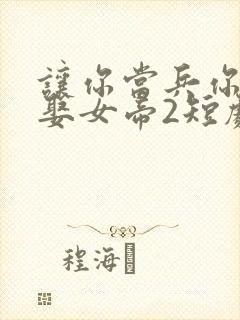 讓你當兵你
娶女帝2短
程海